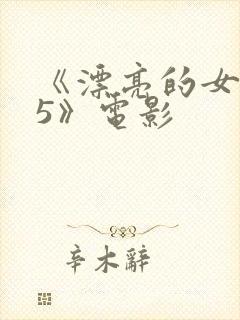 《漂亮的女
5》电影
辛木辭